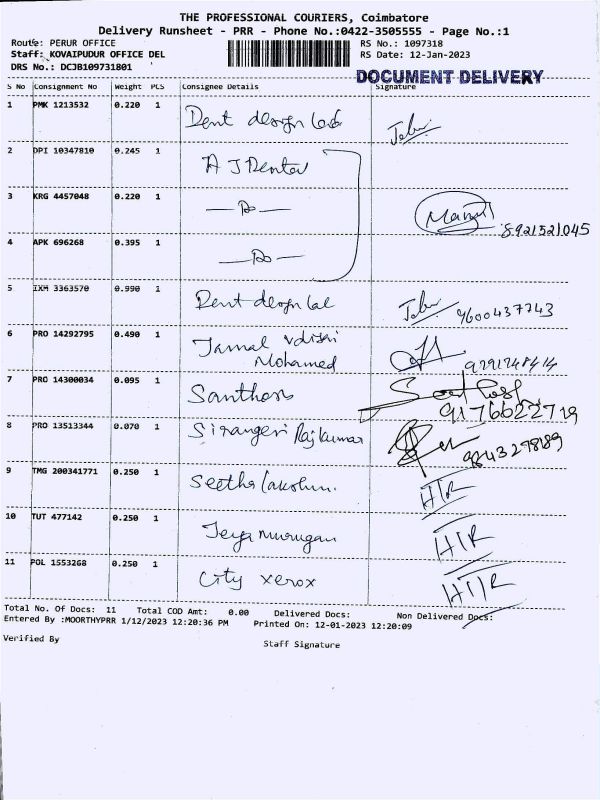 THE PROFESSIONAL COURIERS, Coimbatore
Delivery Runsheet - PRR - Phone No.:0422-3505555 - Page No.:1
Route: PERUR OFFICE
RS No.: 1097318
Staff: KOVAIPUDUR OFFICE DEL
RS Date: 12-Jan-2023
DRS No.: DCJB109731801
DOCUMENT DELIVERY
S No Consignment No Weight PCS Consignee Details Signature
1 PMK 1213532 0.220 1 Dent design lab
2 DPI 10347810 0.245 1 A J Dental
3 KRG 4457048 0.220 1 —Do—
8921521045
4 APK 696268 0.395 1 —Do—
5 IXM 3363570 0.990 1 Dent design lab 9600437743
6 PRO 14292795 0.490 1 Jamal
Mohamed
7 PRO 14300034 0.095 1 Santhosh Santhosh
9176622719
8 PRO 13513344 0.070 1 Rajkumar
9 TMG 200341771 0.250 1 Seetha
10 TUT 477142 0.250 1 Jeya Murugan
11 POL 1553268 0.250 1 City xerox
Total No. Of Docs: 11 Total COD Amt: 0.00 Delivered Docs: Non Delivered Docs:
Entered By :MOORTHYPRR 1/12/2023 12:20:36 PM Printed On: 12-01-2023 12:20:09
Verified By Staff Signature